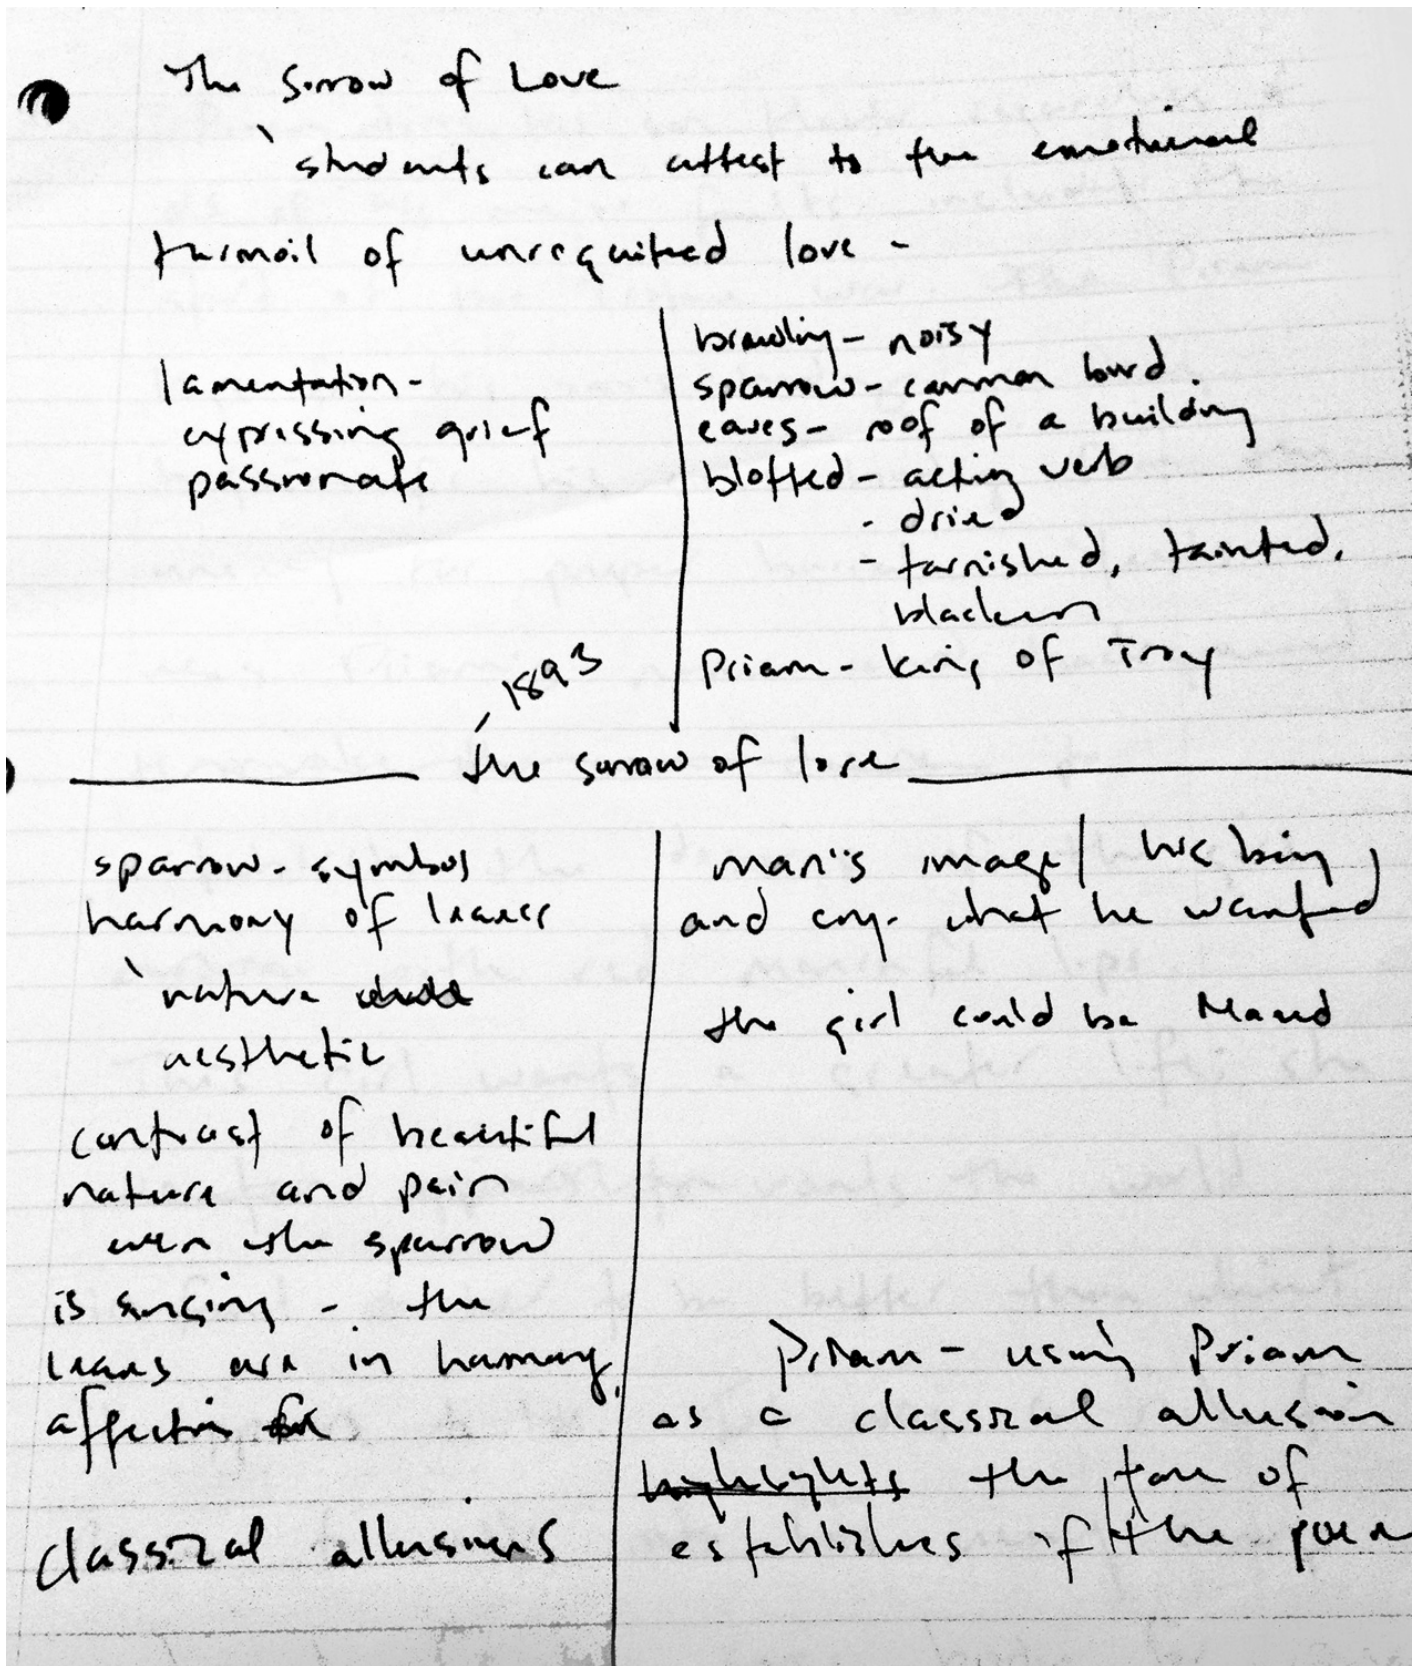 The Sorrow of Love
students can attest to the emotional
turmoil of unrequited love -
lamentation -
expressing grief
passionate
brawling - noisy
sparrow - common bird.
eaves - roof of a building
blotted - acting verb
- dried
- tarnished, tainted,
blacken
Priam - King of Troy
1893
the sorrow of love
sparrow - symbol
harmony of leaves
nature
aesthetic
contrast of beautiful
nature and pain
even the sparrow
is singing - the
leaves are in harmony,
affection
classical allusions
man's image / his being,
and cry - what he wanted
the girl could be Maud
Priam - using Priam
as a classical allusion
highlights the tone of
establishes if the poem